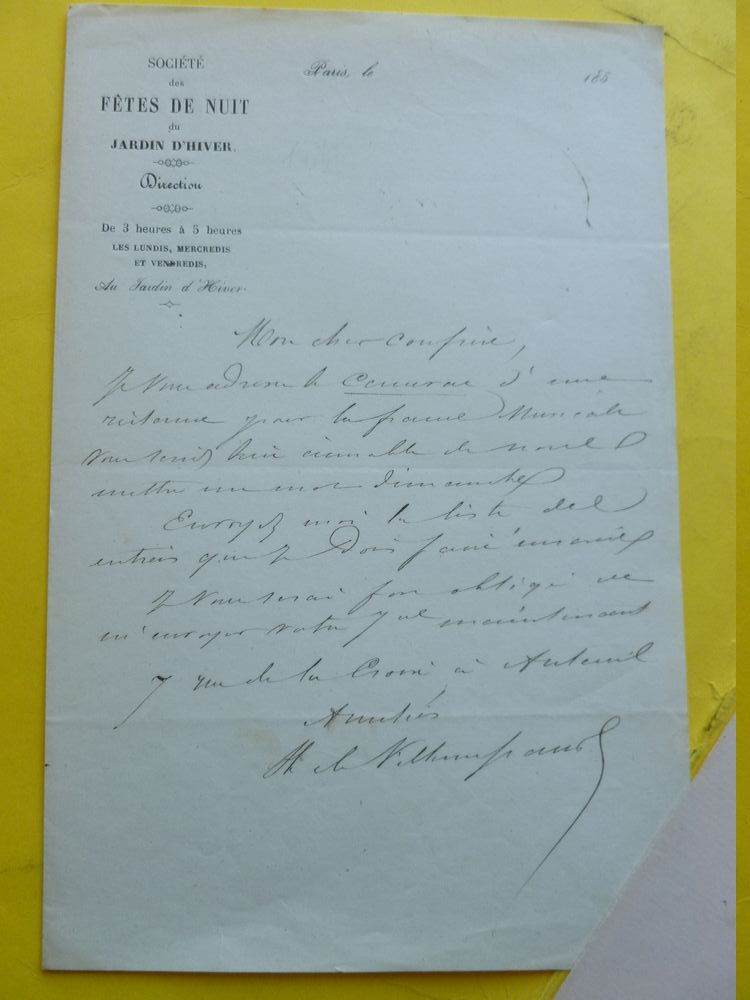 SOCIÉTÉ
des
FÊTES DE NUIT
du
JARDIN D'HIVER.
Direction
De 3 heures à 5 heures
LES LUNDIS, MERCREDIS
ET VENDREDIS,
Au Jardin d'Hiver.
Paris, le 185
Mon cher confrère,
Je vous adresse le d'une
réclame pour la france Musicale
Vous serez bien aimable de nous
mettre un mot dimanche
Envoyez moi la liste des
entrées que je dois faire
Je vous serai fort obligé de
m'envoyer votre jal maintenant
7 rue de la Croix à Auteuil
Amitiés
de Villemessant